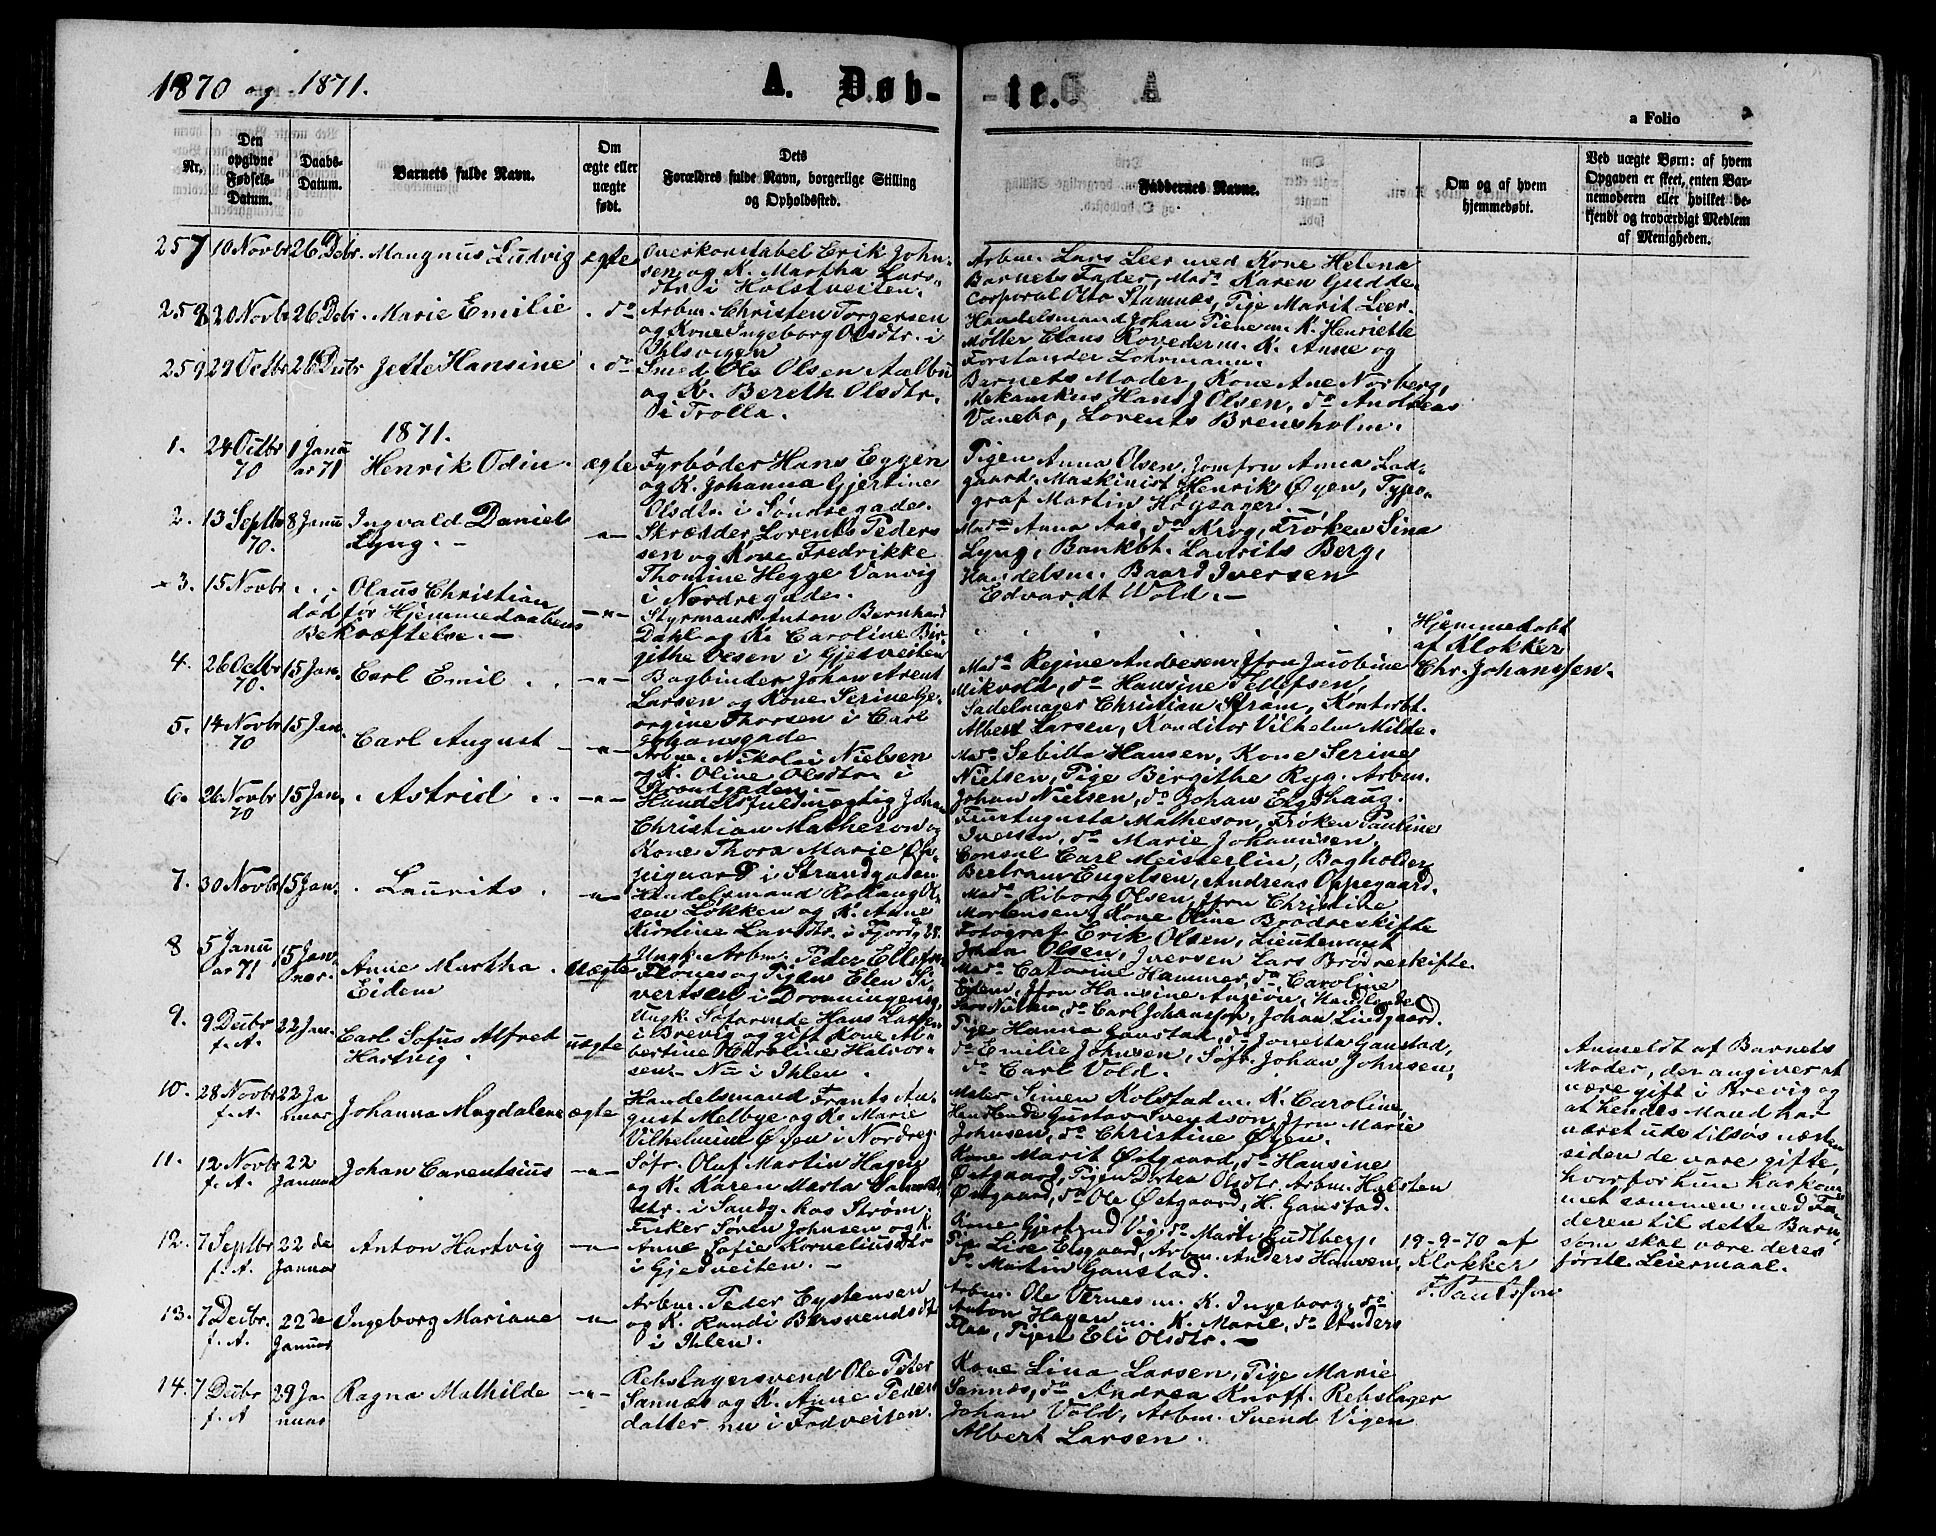 1870 og 1871.
A. Døb-
te.
a Folio
Nr.
Den opgivne Fødsels-Datum.
Daabs-Datum.
Barnets fulde Navn.
Om ægte eller uægte født.
Dets Forældres fulde Navn, borgerlige Stilling og Opholdsted.
Faddernes Navne.
Om og af hvem hjemmedøbt.
Ved uægte Børn: af hvem Opgaven er skeet, enten Barnemoderen eller hvilket bekjendt og troværdigt Medlem af Menigheden.
257 10 Novbr 26 Debr. Mangnus Ludvig ægte
Overkonstabel Erik John-
sen og K. Martha Lars-
dtr i Holstveiten.
Arbm. Lars Leer med Kone Helena
Barnets Fader, Mada Karen Gudde
Corporal Otto Stamnes, Tige Marit Leer.
258 20 Novbr 26 Debr. Marie Emilie do
Arbm. Christen Torgersen
og Kone Ingeborg Olsdtr. i
Ihlsvigen
Handelsmand Johan Piene m. K. Henriette
Møller Claus Roveder m. K. Anne og
Forstander Lohrmann.
259 29 Octbr 26 Debr Jette Hansine do
Smed Ole Olsen Aalbu
og K. Bereth Olsdtr.
i Trolla.
Barnets Moder, Kone Ane Norberg,
Mekanikus Hans J Olsen, do Andreas
Vanebo, Lorents Brensholm.
1871.
1. 24 Octbr 70 1 Januar 71 Henrik Odin. ægte
Fyrbøder Hans Eggen
og K. Johanna Gjertine
Olsdtr. i Søndregade.
Pigen Anna Olsen, Jomfru Anna Lad-
gaard. Maskinist Henrik Øyen, Typo-
graf Martin Høysager.
2. 13 Septbr 70. 8 Janu Ingvald Daniel
Lyng. -
Skrædder Lorents Peder-
sen og Kone Fredrikke
Thomine Hegge Vanvig
i Nordregade.
Mada Anna Aas, do Krog, Frøken Sina
Lyng, Bankbt. Laurits Berg,
Handelsm. Baard Iversen
Edvardt Wold. -
3. 15 Novbr Olaus Christian
død før Hjemmedaabens
Bekræftelse. -
Styrmand Anton Bernhard
Dahl og K. Caroline Bir-
githe Olsen i Gjetveiten
Hjemmedøbt
af Klokker
Chr. Johanssen.
4. 26 Octbr 70. 15 Jan. Carl Emil
Bogbinder Johan Arent
Larsen og Kone Serine Ge-
orgine Thorsen i Carl
Johansgade
Mada Regine Andresen, Jfru Jacobine
Mikvold, do Hansine Tellefsen,
Sadelmager Christian Strøm, Kontorbt.
Albert Larsen, Konditor Vilhelm Milde.
5. 14 Novbr 70 15 Jan. Carl August
Arbm. Nikolai Nielsen
og K. Oline Olsdtr. i
Strandgaden. -
Mada Sebilla Hansen, Kone Serine
Nielsen, Pige Bergithe Ryg. Arbm.
Johan Nielsen, do Johan Elgshaug.
6. 26 Novbr 70 15 Jan. Astrid
Handelsfuldmægtig Johan
Christian Matheson og
Kone Thora Marie
i Strandgaden
Fru Augusta Matheson, Frøken Pauline
Iversen, do Marie Johannsen,
Consul Carl Meisterlin, Bogholder
Bertram Engelsen, Andreas Oppegaard.
7. 30 Novbr 15 Jan. Laurits.
Handelsmand Ol-
sen Løkken og K. Anne
Kirstine Larsdtr. i Fjordg 28.
Mada Riborg Olsen, Jfru Christine
Mortensen, Kone Oline Brødreskifte
Fotograf Erik Olsen, Lieutenant
Johan Olsen, Iversen Lars Brødreskifte.
8 5 Januar 71 15 Januar. Anne Martha
Eidem
Uægte
Ungk. Arbm. Peder Ellefsen
Flones og Pigen Elen Si-
vertsen i Dronningensg.
Mada Catarine Hammer, do Caroline
Eidem, Jfru Hansine Angeon, Handlende
Lars Nielsen, do Carl Johanssen, Johan Lindgaard.
9. 9 Decbr f. A. 22 Jan. Carl Sofus Alfret
Hartvig.
uægte
Ungk. Søfarende Hans Larsen
i Brevig og gift Kone Al-
bertine Karoline Halvor-
sen - Nu i Ihlen.
Pige Hanna Gaustad, do Jonetta Gaustad,
do Emilie Johnsen, Søfr. Johan Johnsen,
do Carl Vold.
Anmeldt af Barnets
Moder, der angiver at
være gift i Brevig og
at hendes Mand har
været ude tilsøs næsten
siden de vare gifte,
hvorfor hun har kom-
met sammen med Fa-
deren til dette Barn,
som skal være deres
første Leiermaal.
10. 28 Novbr f. A. 22 Januar Johanna Magdalene ægte
Handelsmand Frants Au-
gust Melbye og K. Marie
Vilhelmine Øyen i Nordreg.
Maler Simen Kolstad m. K. Caroline,
Handlende Gustav Svendson, Jfru Marie
Johnsen, do Christine Øyen.
11. 12 Novbr f. A. 22 Januar Johan Carentsius
Søfr. Oluf Martin Hagen
og K. Karen Marta
dtr. i Sandg. hos Strøm.
Kone Marit Østgaard, do Hansine
Østgaard, Pigen Dortea Olsdtr. Arbm. Halsten
Østgaard, do Ole Østgaard, H. Gaustad.
12. 7 Septbr f. A. 22de Januar Anton Hartvig
Fisker Søren Johnsen og K.
Anne Sofie Korneliusdtr
i Gjedveiten. -
Kone Gjertrud Vig, do Marit Gudtberg,
Pig. Lise Elsgaard, Arbm. Anders Hansen,
do Martin Gaustad.
19-9-70 af
Klokker
13. 7 Decbr. f. A. 22de Januar Ingeborg Mariane
Arbm. Peder Eystensen
og K. Randi Bersvendsdtr
i Ihlen.
Arbm. Ole Vernes m. K. Ingeborg, do
Anton Hagen m. K. Marie, do Anders
Flaa, Pigen Eli Olsdtr. -
14. 7 Decbr f. A 29 Januar Ragna Mathilde
Rebslagersvend Ole Peter
Sannæs og K. Anne Peders-
datter nu i Fadveiten.
Kone Lina Larsen, Tige Marie
Sannæs, do Andrea Knoff. Rebslager
Johan Vold, Arbm. Svend Vigen
Albert Larsen.